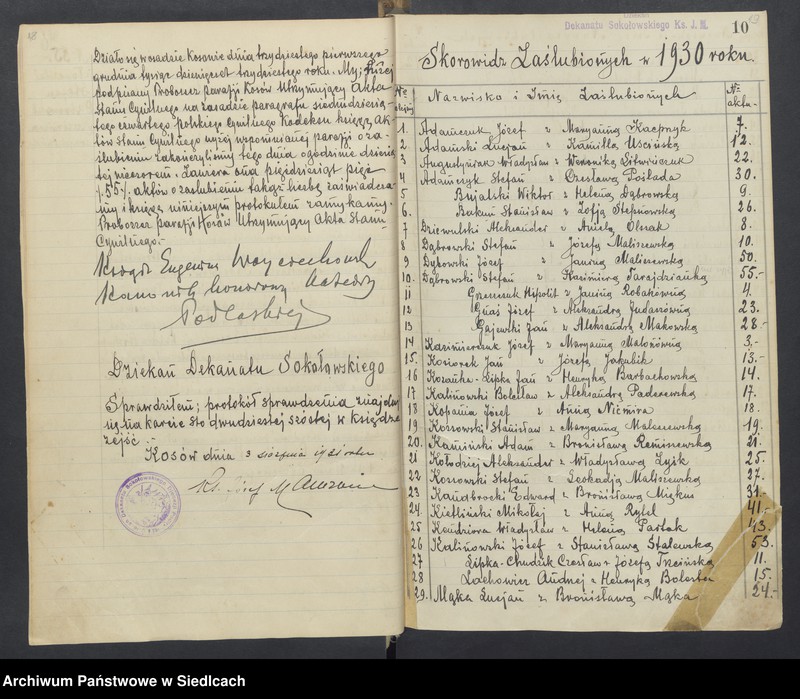 Działo się w osadzie Kosowie dnia trzydziestego pierwszego
grudnia tysiąc dziewięćset trzydziestego roku. My, niżej
podpisany Proboszcz parafji Kosów Utrzymujący Akta
Stanu Cywilnego na zasadzie paragrafu siedmdziesią-
tego czwartego polskiego Cywilnego Kodeksu księgę Ak-
tów Stanu Cywilnego wyżej wspomnianej parafji o za-
ślubieniu zakończyliśmy tego dnia o godzinie dziewią-
tej wieczorem. Zawiera ona pięćdziesiąt pięć
/55/ aktów o zaślubieniu takąż liczbę zaświadcza-
my i księgę niniejszym protokułem zamykamy.
Proboszcz parafji Kosów Utrzymujący Akta Stanu
Cywilnego.-
Ksiądz Eugenjusz
Kanonik honorowy Katedry
Podlaskiej
Dziekan Dekanatu Sokołowskiego
Sprawdziłem; protokół sprawdzenia znajduje
się na karcie sto dwudziestej szóstej w księdze
zejść.-
Kosów dnia 3 sierpnia 1931 roku
Ks. Józef
Dekanatu Sokołowskiego Ks. J. M.
10
Skorowidz Zaślubionych w 1930 roku.
Nazwisko i Imię Zaślubionych № aktu-
1. Adamczuk Józef z Marjanną Kacprzyk 7.
2 Adamski Lucjan z Kamillą Uścińską 12.
3 Augustyniak Władysław z Weroniką Litwińczuk 22.
4 Adamczyk Stefan z Czesławą Poślada 30.
5 Bujalski Wiktor z Heleną Dąbrowską 9.
6. Bakun Stanisław z Zofją Stepnowską 26.
7 Dziewulski Aleksander z Anielą Olszak 8.
8 Dąbrowski Stefan z Józefą Maliszewską 10.
9 Dybowski Józef z Janiną Maliszewską 50.
10. Dąbrowski Stefan z Kazimierą Tarajdzianką 55.-
11 Hipolit z Janiną Robakówną 4.
12 Guaś Józef z Aleksandrą Judasówną 23.
13 Gajewski Jan z Aleksandrą Makowską 28.-
14 Kazimierczuk Józef z Marjanną Matońówną 3.-
15. Kosiorek Jan z Józefą Jakubik 13.-
16 Kozańka-Lipka Jan z Henryką Barbachowską 14.
17 Kalinowski Bolesław z Aleksandrą Paderewską 17.
18 Kopania Józef z Anną Niemira 18.
19 Kossowski Stanisław z Marjanną Malczewską 19.
20. Kamiński Adam z Bronisławą Remiszewską 21.
21 Kołodziej Aleksander z Władysławą Łysik 25.
22 Kossowski Stefan z Leokadją Maliszewską 27.
23 Kaudbrocki Edward z Bronisławą Miękus 31.-
24. Kietliński Mikołaj z Anną Rytel 41.
25 Kendziora Władysław z Heleną Partak 43.
26 Kalinowski Józef z Stanisławą Stalewską 53.
27 Lipka-Chudzik Czesław z Józefą Trzcińską 11.
28 Lachowicz Andrzej z Henryką Bolesta 15.
29. Mąka Lucjan z Bronisławą Mąka 24.-
Archiwum Państwowe w Siedlcach